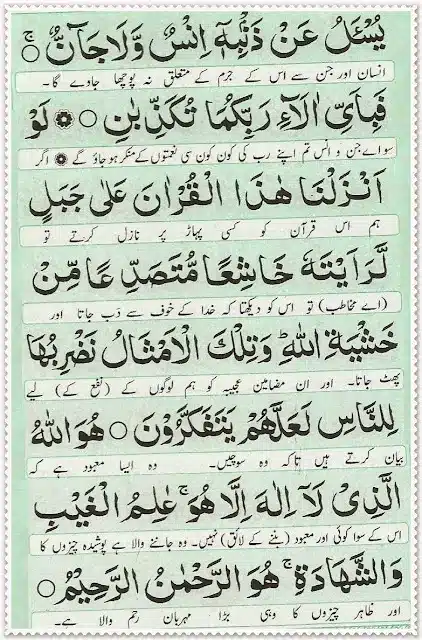 يُسْـَٔلُ عَنْ ذَنْۢبِهٖۤ اِنْسٌ وَّلَا جَآنٌّ ۚ○
انسان اور جن سے اس کے جرم کے متعلق نہ پوچھا جاوے گا۔
فَبِاَيِّ اٰلَآءِ رَبِّكُمَا تُكَذِّبٰنِ ○ ۞ لَوْ
سو اے جن و انس تم اپنے رب کی کون کون سی نعمتوں کے منکر ہو جاؤ گے ۞ اگر
اَنْزَلْنَا هٰذَا الْقُرْاٰنَ عَلٰى جَبَلٍ
ہم اس قرآن کو کسی پہاڑ پر نازل کرتے تو
لَّرَاَيْتَهٗ خَاشِعًا مُّتَصَدِّعًا مِّنْ
(اے مخاطب) تو اس کو دیکھتا کہ خدا کے خوف سے دب جاتا اور
خَشْيَةِ اللّٰهِ ؕ وَتِلْكَ الْاَمْثَالُ نَضْرِبُهَا
پھٹ جاتا۔ اور ان مضامین عجیبہ کو ہم لوگوں کے (نفع کے) لیے
لِلنَّاسِ لَعَلَّهُمْ يَتَفَكَّرُوْنَ ○ هُوَ اللّٰهُ
بیان کرتے ہیں تاکہ وہ سوچیں۔ وہ ایسا معبود ہے کہ
الَّذِيْ لَاۤ اِلٰهَ اِلَّا هُوَ ۚ عٰلِمُ الْغَيْبِ
اس کے سوا کوئی اور معبود (بننے کے لائق) نہیں۔ وہ جاننے والا ہے پوشیدہ چیزوں کا
وَالشَّهَادَةِ ۚ هُوَ الرَّحْمٰنُ الرَّحِيْمُ ○
اور ظاہر چیزوں کا وہی بڑا مہربان رحم والا ہے۔